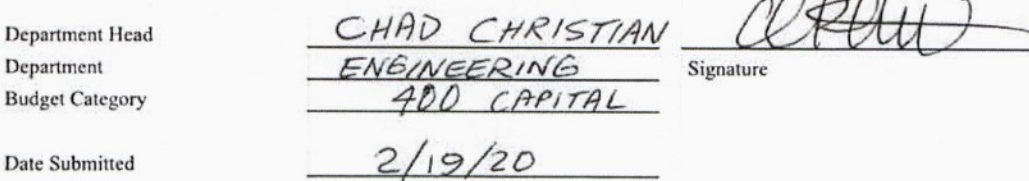 Department Head CHAD CHRISTIAN
Department ENGINEERING Signature
Budget Category 400 CAPITAL
Date Submitted 2/19/20